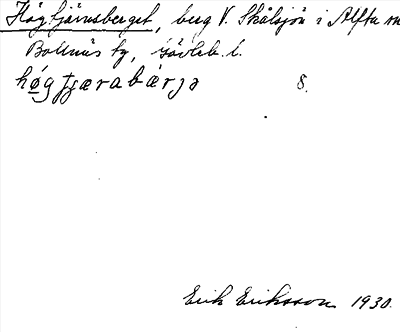 Högtjärnsberget, berg V. Skålsjön i Alfta
Bollnäs tg, Gävleb. l.
høgtjærabärjə 8.
Erik Eriksson 1930.